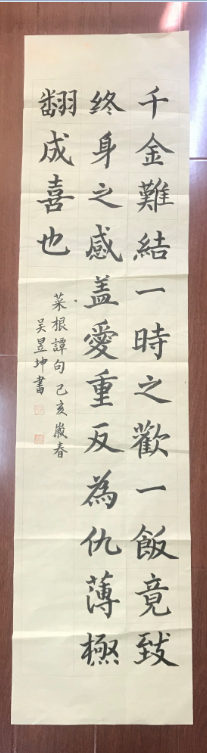 千金難結一時之歡一飯竟致
終身之感盖愛重反為仇薄極
翻成喜也
菜根譚句己亥歲春
吴昱坤書